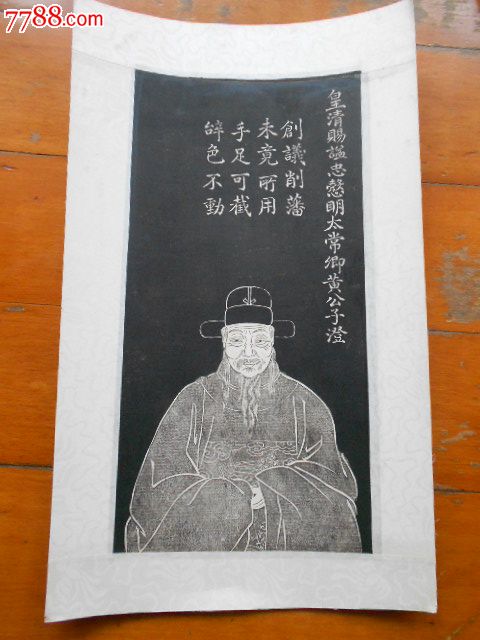 7788.com
皇清賜諡忠慤明太常卿黃公子澄
創議削藩
未竟所用
手足可截
辝色不動